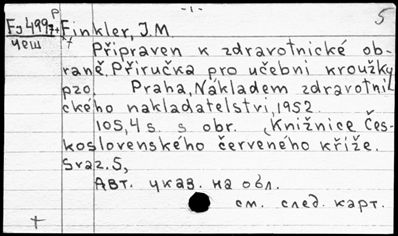 -1-
5
Fy499/7+ р Finkler, J.M.
чеш +
Připraven k zdravotnické ob-
raně. Příručka pro učební kroužky
pzo. Praha, Nákladem zdravotnic-
ckého nakladatelství, 1952
105,4 s. s obr. (Knižnice Čes-
koslovenského červeného kříže.
Svaz. 5,
Авт. указ. на обл.
см. след. карт.